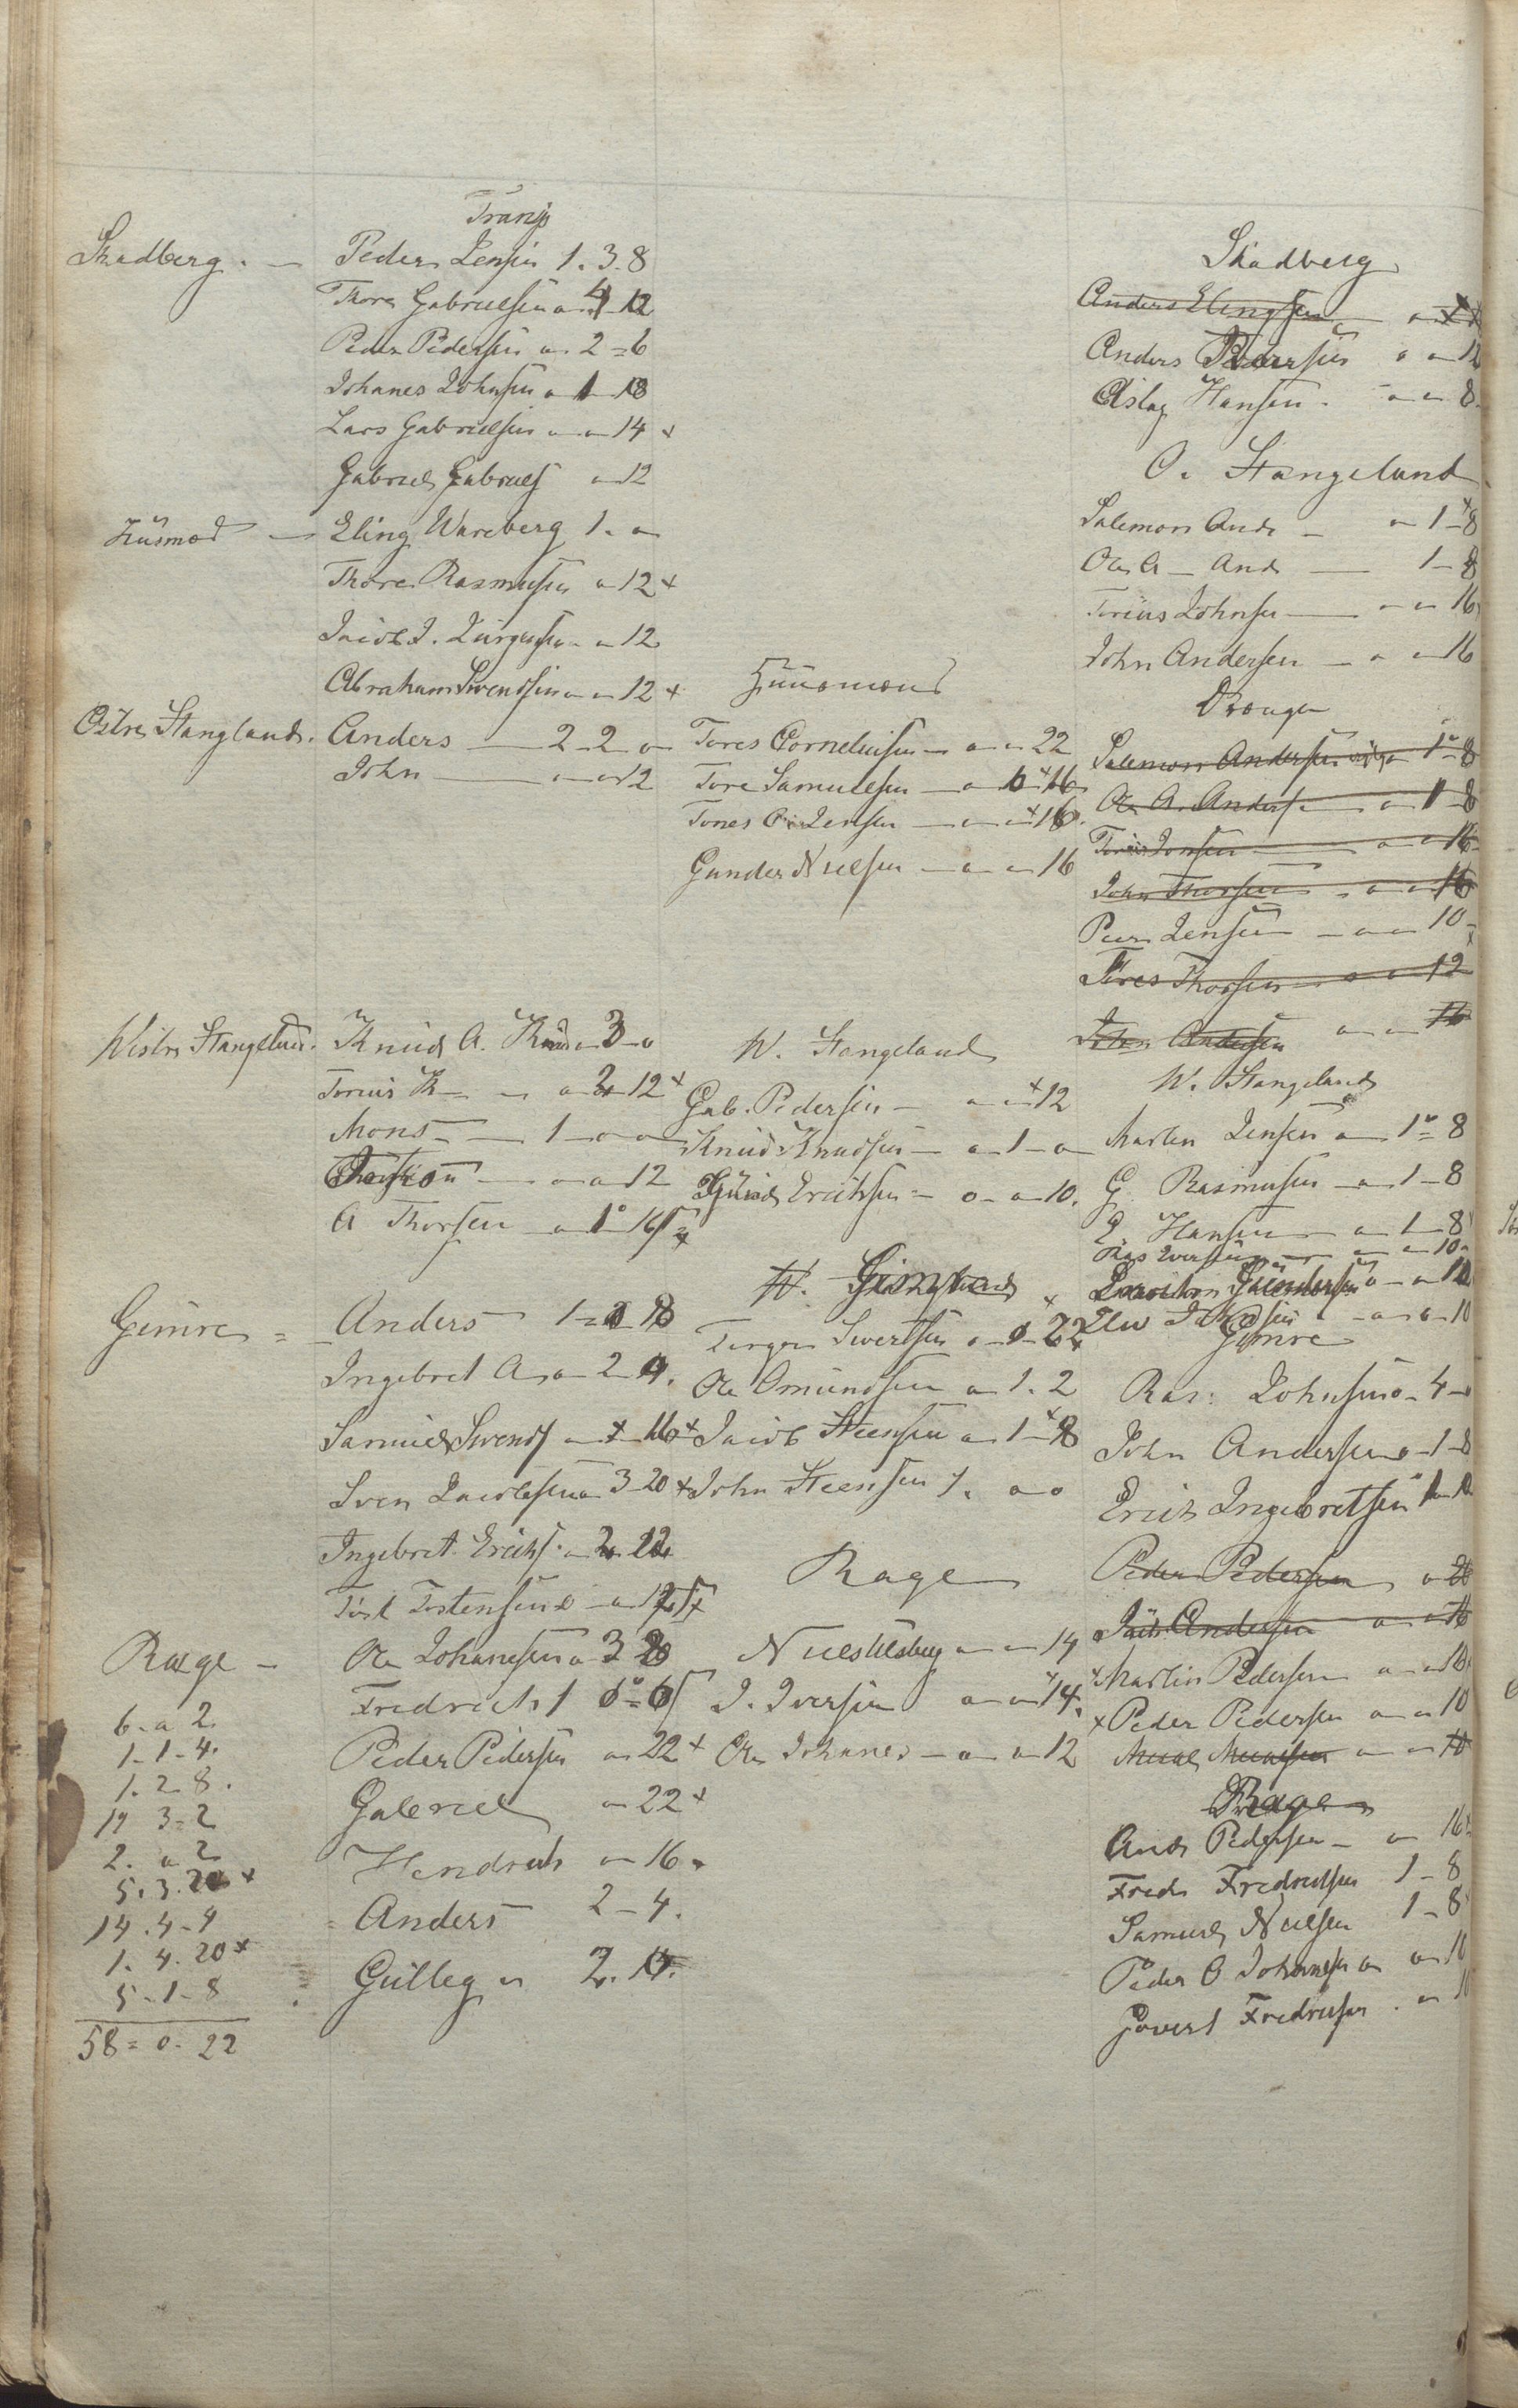 Transp
Skadberg. — Peder Jensen 1. 3. 8
Thore Gabrielsen a 4 12
Peder Pedersen a 2 = 6
Johanes Johnsen a 1 18
Lars Gabrielsen a a 14 x
Gabriel Gabriels a 12
Huusmæd — Eling Wareberg 1. a
Thore Rasmusen a 12 x
Jacob J. Jürgensen a 12
Abraham Swendsen a a 12 x
Østre Stangland. Anders — 2 2 a
John — a a 12
Westre Stangeland. Knud A. 3 a
Torius K — a 2 12 x
Mons — 1 a a
a a 12
A Thorsen a 1 16
Gimre = Anders 1 = 18
Ingebret A a 2
Samuel Swends a 16 x
Sven Jacobsen a 3 20 x
Ingebret Erichs. a 2 22
Tost Tostensen a
Rage — Ole Johanesen a 3 20
Fredrich 1 0 = 6
Peder Pedersen a 22 x
Gabriel a 22 x
Hendrich a 16
Anders 2 - 4.
Gulleg a 2.
6 - a 2
1 - 1 - 4.
1. 2 - 8.
19 3 = 2
2. a 2
5. 3. 20 x
14. 4 - 4
1. 4. 20 x
5 - 1 - 8
58 = 0 - 22
Huusmænd
Tores Corneliusen — a a 22
Tore Samuelsen — a 16
Tones Jensen — a a 16
Gunder Nielsen — a a 16
W. Stangeland
Gab. Pedersen — a a x 12
Knud Knudsen — a 1 — a
Erichsen = a a 10.
Gimre
Torger Swertsen a 22
Ole Omundsen a 1. 2
Jacob Steensen a 1 x 8
John Steensen 1. a a
Rage
Niels a a 14
J. Iversen a a 14
Ole Johanes — a a 12
Skadberg
Anders Elingsen
Anders Pedersen a a 12
Aslag Hansen. a a 8.
O. Stangeland
Salemon Ands — a 1 - 8
Ole A — Ands — 1 - 8
Torius Johnsen — a a 16
John Andersen — a a 16
Drenge
Salemon Andersen 1 - 8
Ole A. Anders a 1 - 8
Torius Jonsen a a 16
John Thorsen a a 16
Peer Jensen — a a 10
Tores Thorsen a a 12
John Andersen a a
W. Stangeland
Marten Jensen a 1 = 8
G. Rasmusen a 1 - 8
Hansen a 1 - 8
a a 10
a a 10
Gimre
Ras: Johnsen a 4
John Andersen a 1 - 8
Erich Ingebretsen
Peder Pedersen a
Andersen a a 16
x Martin Pedersen a a
x Peder Pedersen a a 10
a a
Rage
Ands Pedersen — a 16
Fredr Fredriksen 1 - 8
Samuel Nielsen 1 - 8
Peder O Johannesen a a
Govert Fredriksen. a